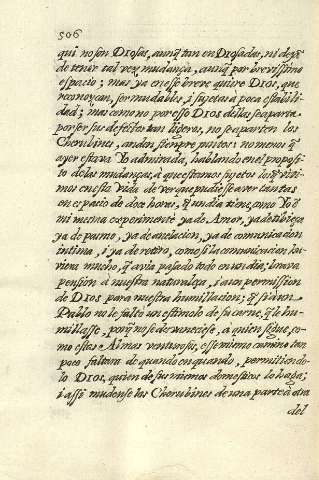 506
qui no son DIOSAS, aunq̃ tan enDiosadas, ni dexã
de tener tal vez mudança, aunq̃ por brevissimo
espacio; mas ya en esse breve quiere DIOS, que
reconozcan, ser mudables, i sujetas a poca estabili-
dad; mas como no por esso DIOS dellas se aparta
por ser sus defetos tan ligeros, no se aparten los
Cherubines, anden siempre juntos: no menos q̃
ayer estava Yo admirada, hablando en el proposi-
to de las mudanças, à que estamos sujetos los q̃ vivi-
mos en esta Vida de ver que pudiesse aver tantas
en espacio de dos horas, q̃ un dia tiene, como Yo ẽ
mi mesma experimentè ya de Amor, ya de tibieza
ya de pasmo, ya de anelacion, ya de comunicacion
intima, i ya de retiro, como si la comunicacion hu-
viera mucho, q̃ avia pasado todo en un dia; brava
pension à nuestra naturaleza, i gran permission
de DIOS para nuestra humillacion; q̃ si à un
Pablo no le faltò un estimolo de su carne, q̃ le hu-
millasse, porq̃ no se desvaneciese, à quien sigue, co-
mo estas Almas venturosas, esse mismo camino tan
poco faltara de quando en quando, permitiendo-
lo DIOS, quien de sus mismos domesticos lo haga;
i assi mudense los Cherubines de una parte à otra
del